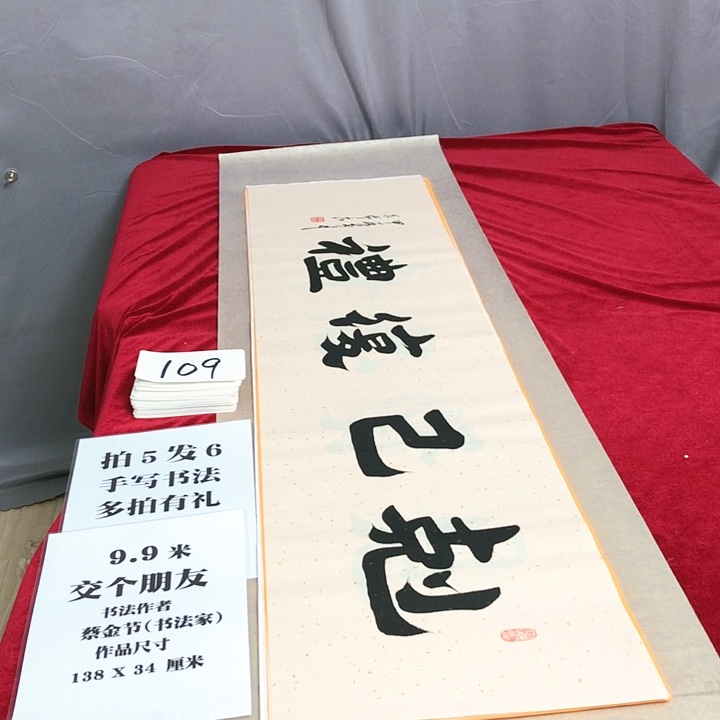 剋己復禮
109
拍5发6
手写书法
多拍有礼
9.9 米
交个朋友
书法作者
蔡金节(书法家)
作品尺寸
138 X 34 厘米